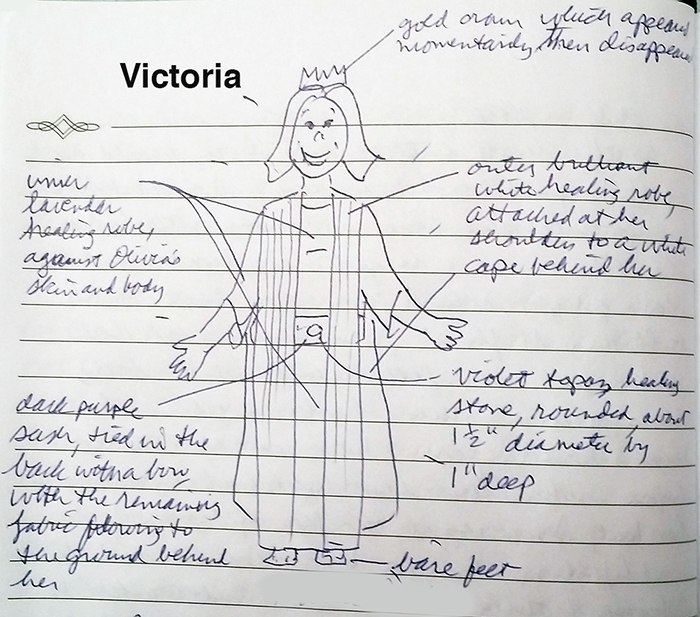 gold crown which appears
momentarily then disappears
Victoria
inner
lavender
healing robe,
against Olivia's
skin and body
outer brilliant
white healing robe,
attached at her
shoulders to a white
cape behind her
dark purple
sash, tied in the
back with a bow,
with the remaining
fabric flowing to
the ground behind
her
violet topaz healing
stone, rounded, about
1 1/2" diameter by
1" deep
bare feet